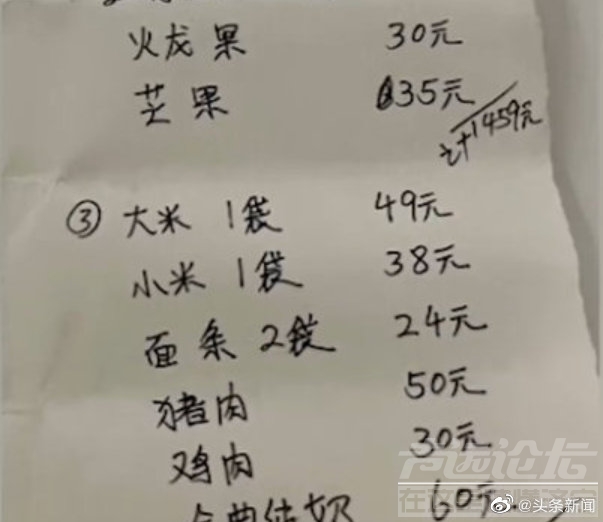 火龙果 30元
芒果 35元
计1459元
③ 大米 1袋 49元
小米 1袋 38元
面条 2袋 24元
猪肉 50元
鸡肉 30元
金典纯奶 60元
@头条新闻